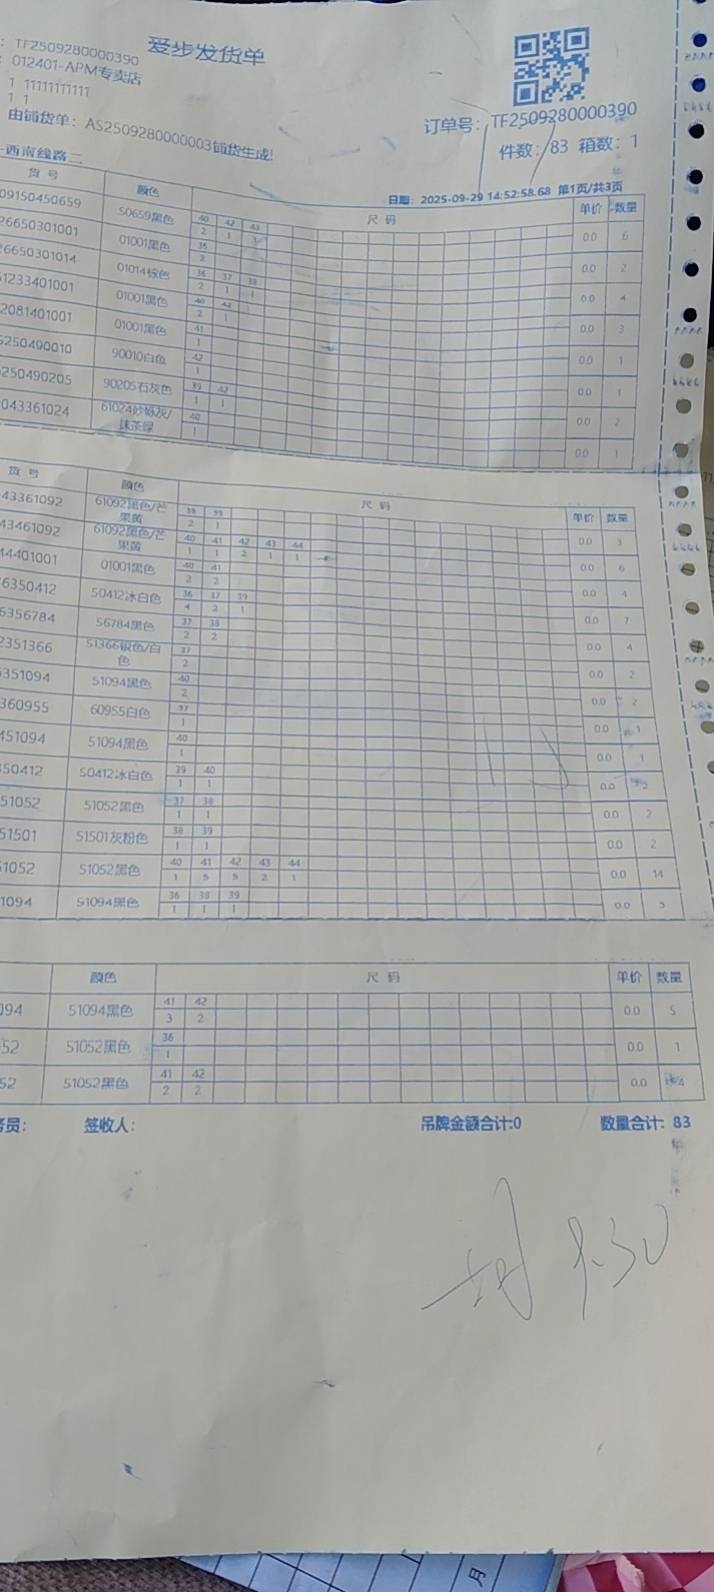 爱步发货单
: TF2509280000390
: 012401-APM专卖店
1 11111111111
1 1
订单号: TF2509280000390
由铺货单: AS2509280000003铺货生成!
件数: 83 箱数: 1
-西南线路二
日期: 2025-09-29 14:52:58.68 第1页/共3页
货号 颜色 尺码 单价 数量
09150450659 50659黑色 40 42 43 0.0 6
2 1
26650301001 01001黑色 36 0.0 2
2
6650301014 01014棕色 36 37 38 0.0 4
2 1 1
1233401001 01001黑色 40 42 0.0 3
2 1
2081401001 01001黑色 41 0.0 1
1
250490010 90010白色 42 0.0 1
1
250490205 90205石灰色 39 42 0.0 2
1 1
043361024 61024砂砾灰/抹茶绿 40 0.0 1
1
货号 颜色 尺码 单价 数量
43361092 61092黑色/芒果黄 38 39 0.0 3
2 1
43461092 61092黑色/芒果黄 40 41 42 43 44 0.0 6
1 1 2 1 1
44401001 01001黑色 40 41 0.0 4
2 2
6350412 50412冰白色 36 37 39 0.0 7
4 2 1
6356784 56784黑色 37 38 0.0 4
2 2
2351366 51366银色/白色 37 0.0 2
2
351094 51094黑色 40 0.0 2
2
360955 60955白色 37 0.0 1
1
451094 51094黑色 40 0.0 1
1
50412 50412冰白色 39 40 0.0 2
1 1
51052 51052黑色 37 38 0.0 2
1 1
51501 51501灰粉色 38 39 0.0 2
1 1
1052 51052黑色 40 41 42 43 44 0.0 14
1 5 5 2 1
1094 51094黑色 36 38 39 0.0 3
1 1 1
颜色 尺码 单价 数量
094 51094黑色 41 42 0.0 5
3 2
52 51052黑色 36 0.0 1
1
52 51052黑色 41 42 0.0 4
2 2
务员: 签收人: 吊牌金额合计:0 数量合计: 83
9.30
月